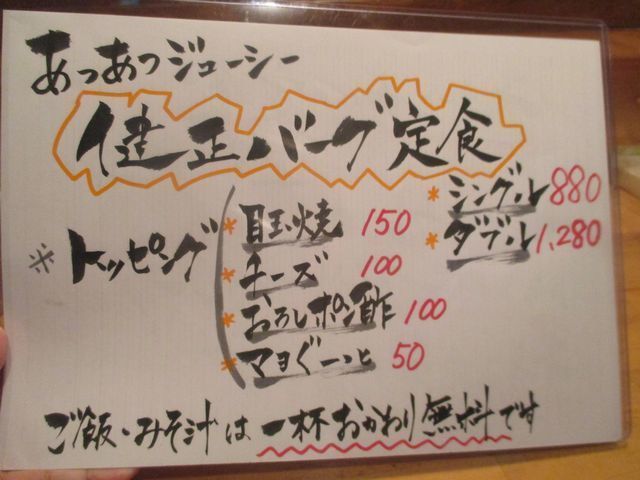 あつあつジューシー
健正バーグ定食
*シングル 880
*ダブル 1,280
※トッピング
*目玉焼 150
*チーズ 100
*おろしポン酢 100
*マヨぐーっと 50
ご飯・みそ汁は一杯おかわり無料です